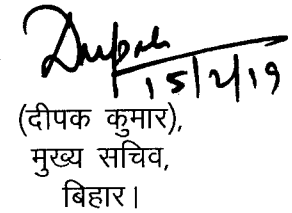 Deepak
15/2/19
(दीपक कुमार),
मुख्य सचिव,
बिहार।